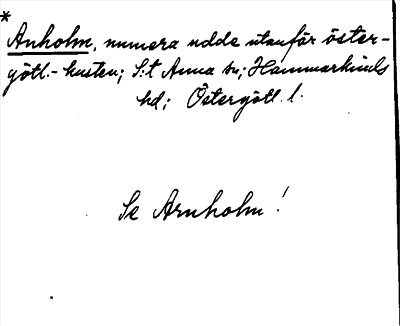 *
Anholm, numera udde utanför öster-
götl.-kusten; S:t Anna sn; Hammarkinds
hd; Östergötl. l.
Se Arnholm!